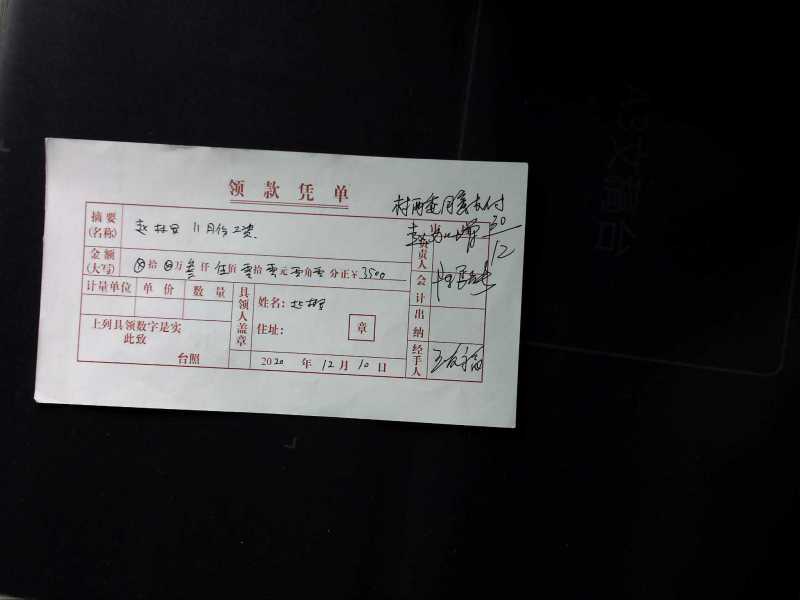 领款凭单
村两委同意支付
30/12
摘要(名称) 赵林 11月份工资 单位负责人
金额(大写) ⊗拾⊗万叁仟伍佰零拾零元零角零分正¥3500
会计
计量单位 单价 数量 具领人盖章 姓名: 赵林 出纳
上列具领数字是实 住址: 章
此致
台照 2020年12月10日 经手人 王
A3文稿台